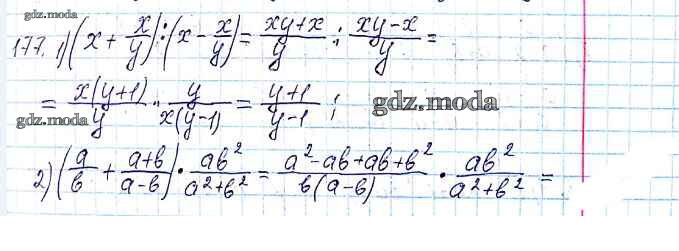 gdz.moda
177. 1) (x + x/y) : (x - x/y) = (xy+x)/y : (xy-x)/y =
= x(y+1)/y · y/x(y-1) = (y+1)/(y-1) ; gdz.moda
gdz.moda
2) (a/b + (a+b)/(a-b)) · ab²/(a²+b²) = (a²-ab+ab+b²)/b(a-b) · ab²/(a²+b²) =